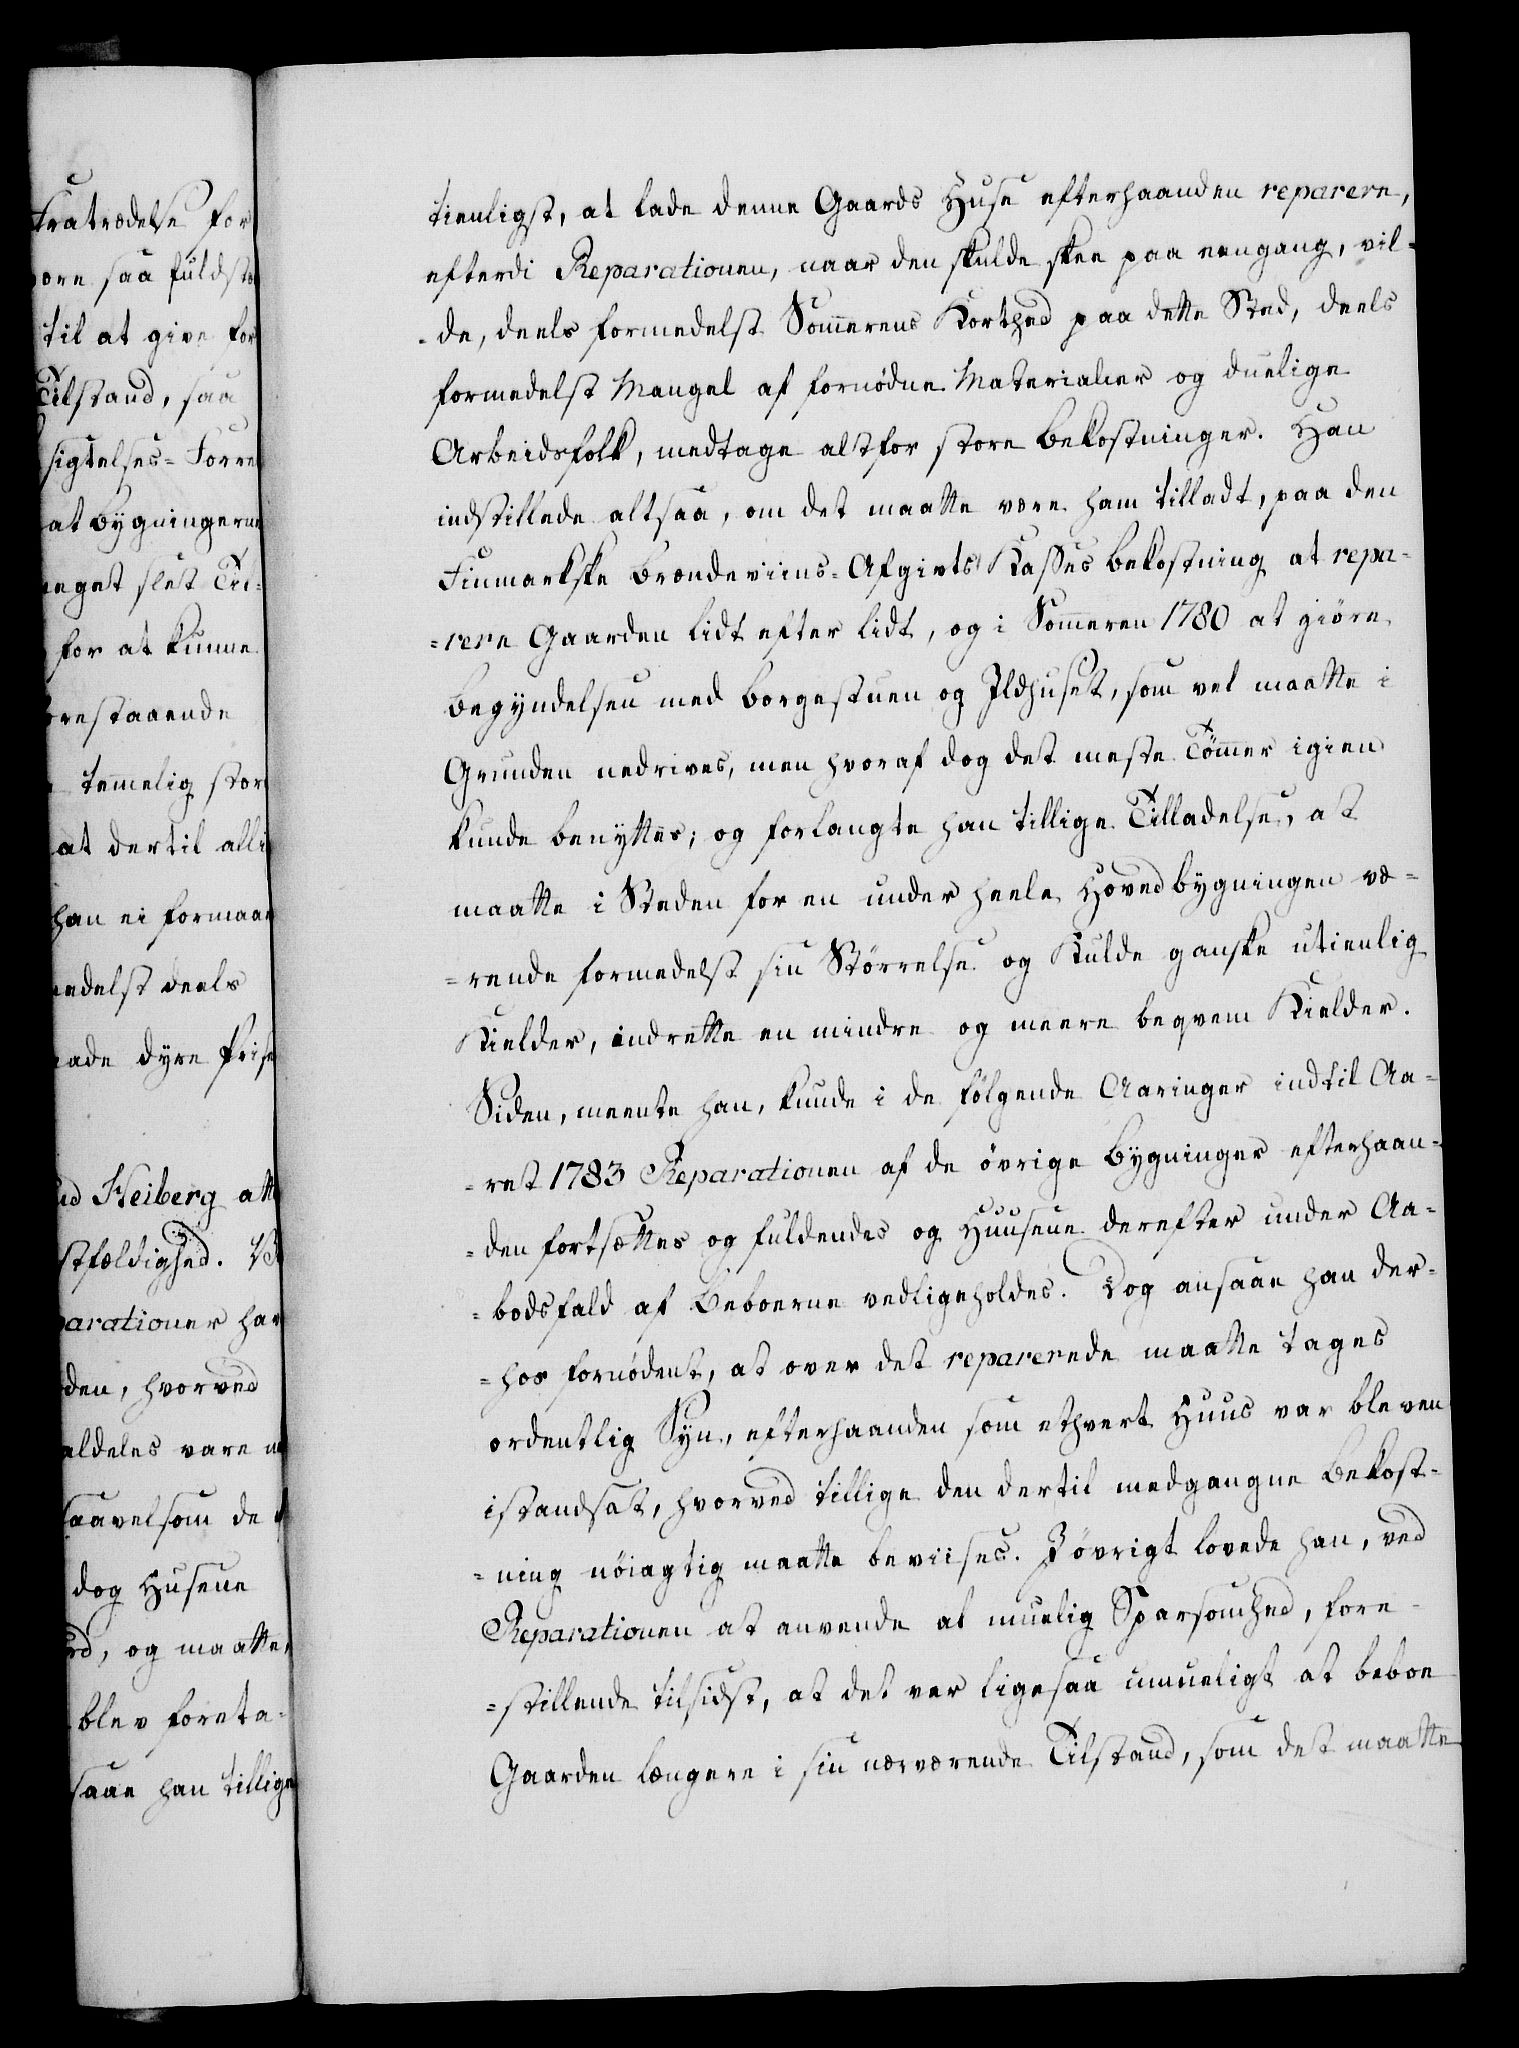 Fratrædelse for
være saa fuldstæ
til at give for
Tilstand, saa
sigtelses-Forre
at Bygningerne
meget slet Til-
for at kunne
orestaaende
temmelig stor
at dertil alli
han ei formaae
medelst deels
dyre Prise
Heiberg att
stfældighed.
parationer har
den, hvorved
aldeles vare
saavelsom de
dog Husene
og maatte
blev foreta-
saae han tillige
tienligst, at lade denne Gaards Huse efterhaanden reparere,
efterdi Reparationen, naar den skulde skee paa eengang, vil-
-de, deels formedelst Sommerens Korthed paa dette Sted, deels
formedelst Mangel af fornødne Materialier og duelige
Arbeidsfolk, medtage altfor store Bekostninger. Han
indstillede altsaa, om det maatte være ham tilladt, paa den
Finmarkske Brændeviins-Afgivts Kasses Bekostning at repa-
=rere Gaarden lidt efter lidt, og i Sommeren 1780 at giøre
Begyndelsen med Borgestuen og Ildhuset, som vel maatte i
Grunden nedrives, men hvoraf dog det meste Tømmer igien
kunde benyttes; og forlangte han tillige Tilladelse, at
maatte i Steden for en under heele Hovedbygningen væ-
=rende formedelst sin Størrelse og Kulde ganske utienlig
Kielder, indrette en mindre og meere beqvem Kielder.
Siden, meente han, kunde i de følgende Aaringer indtil Aa-
=ret 1783 Reparationen af de øvrige Bygninger efterhaan-
=den fortsættes og fuldendes og Huusene derefter under Aa-
=bodsfald af Beboerne vedligeholdes. Dog ansaae han der-
=hos fornødent, at over det reparerede maatte tages
ordentlig Syn, efterhaanden som ethvert Huus var bleven
istandsat, hvorved tillige den dertil medgangne Bekost-
=ning nøiagtig maatte beviises. I øvrigt lovede han, ved
Reparationen at anvende al muelig Sparsomhed, fore-
=stillende tilsidst, at det var ligesaa umueligt at beboe
Gaarden længere i sin nærværende Tilstand, som det maatte